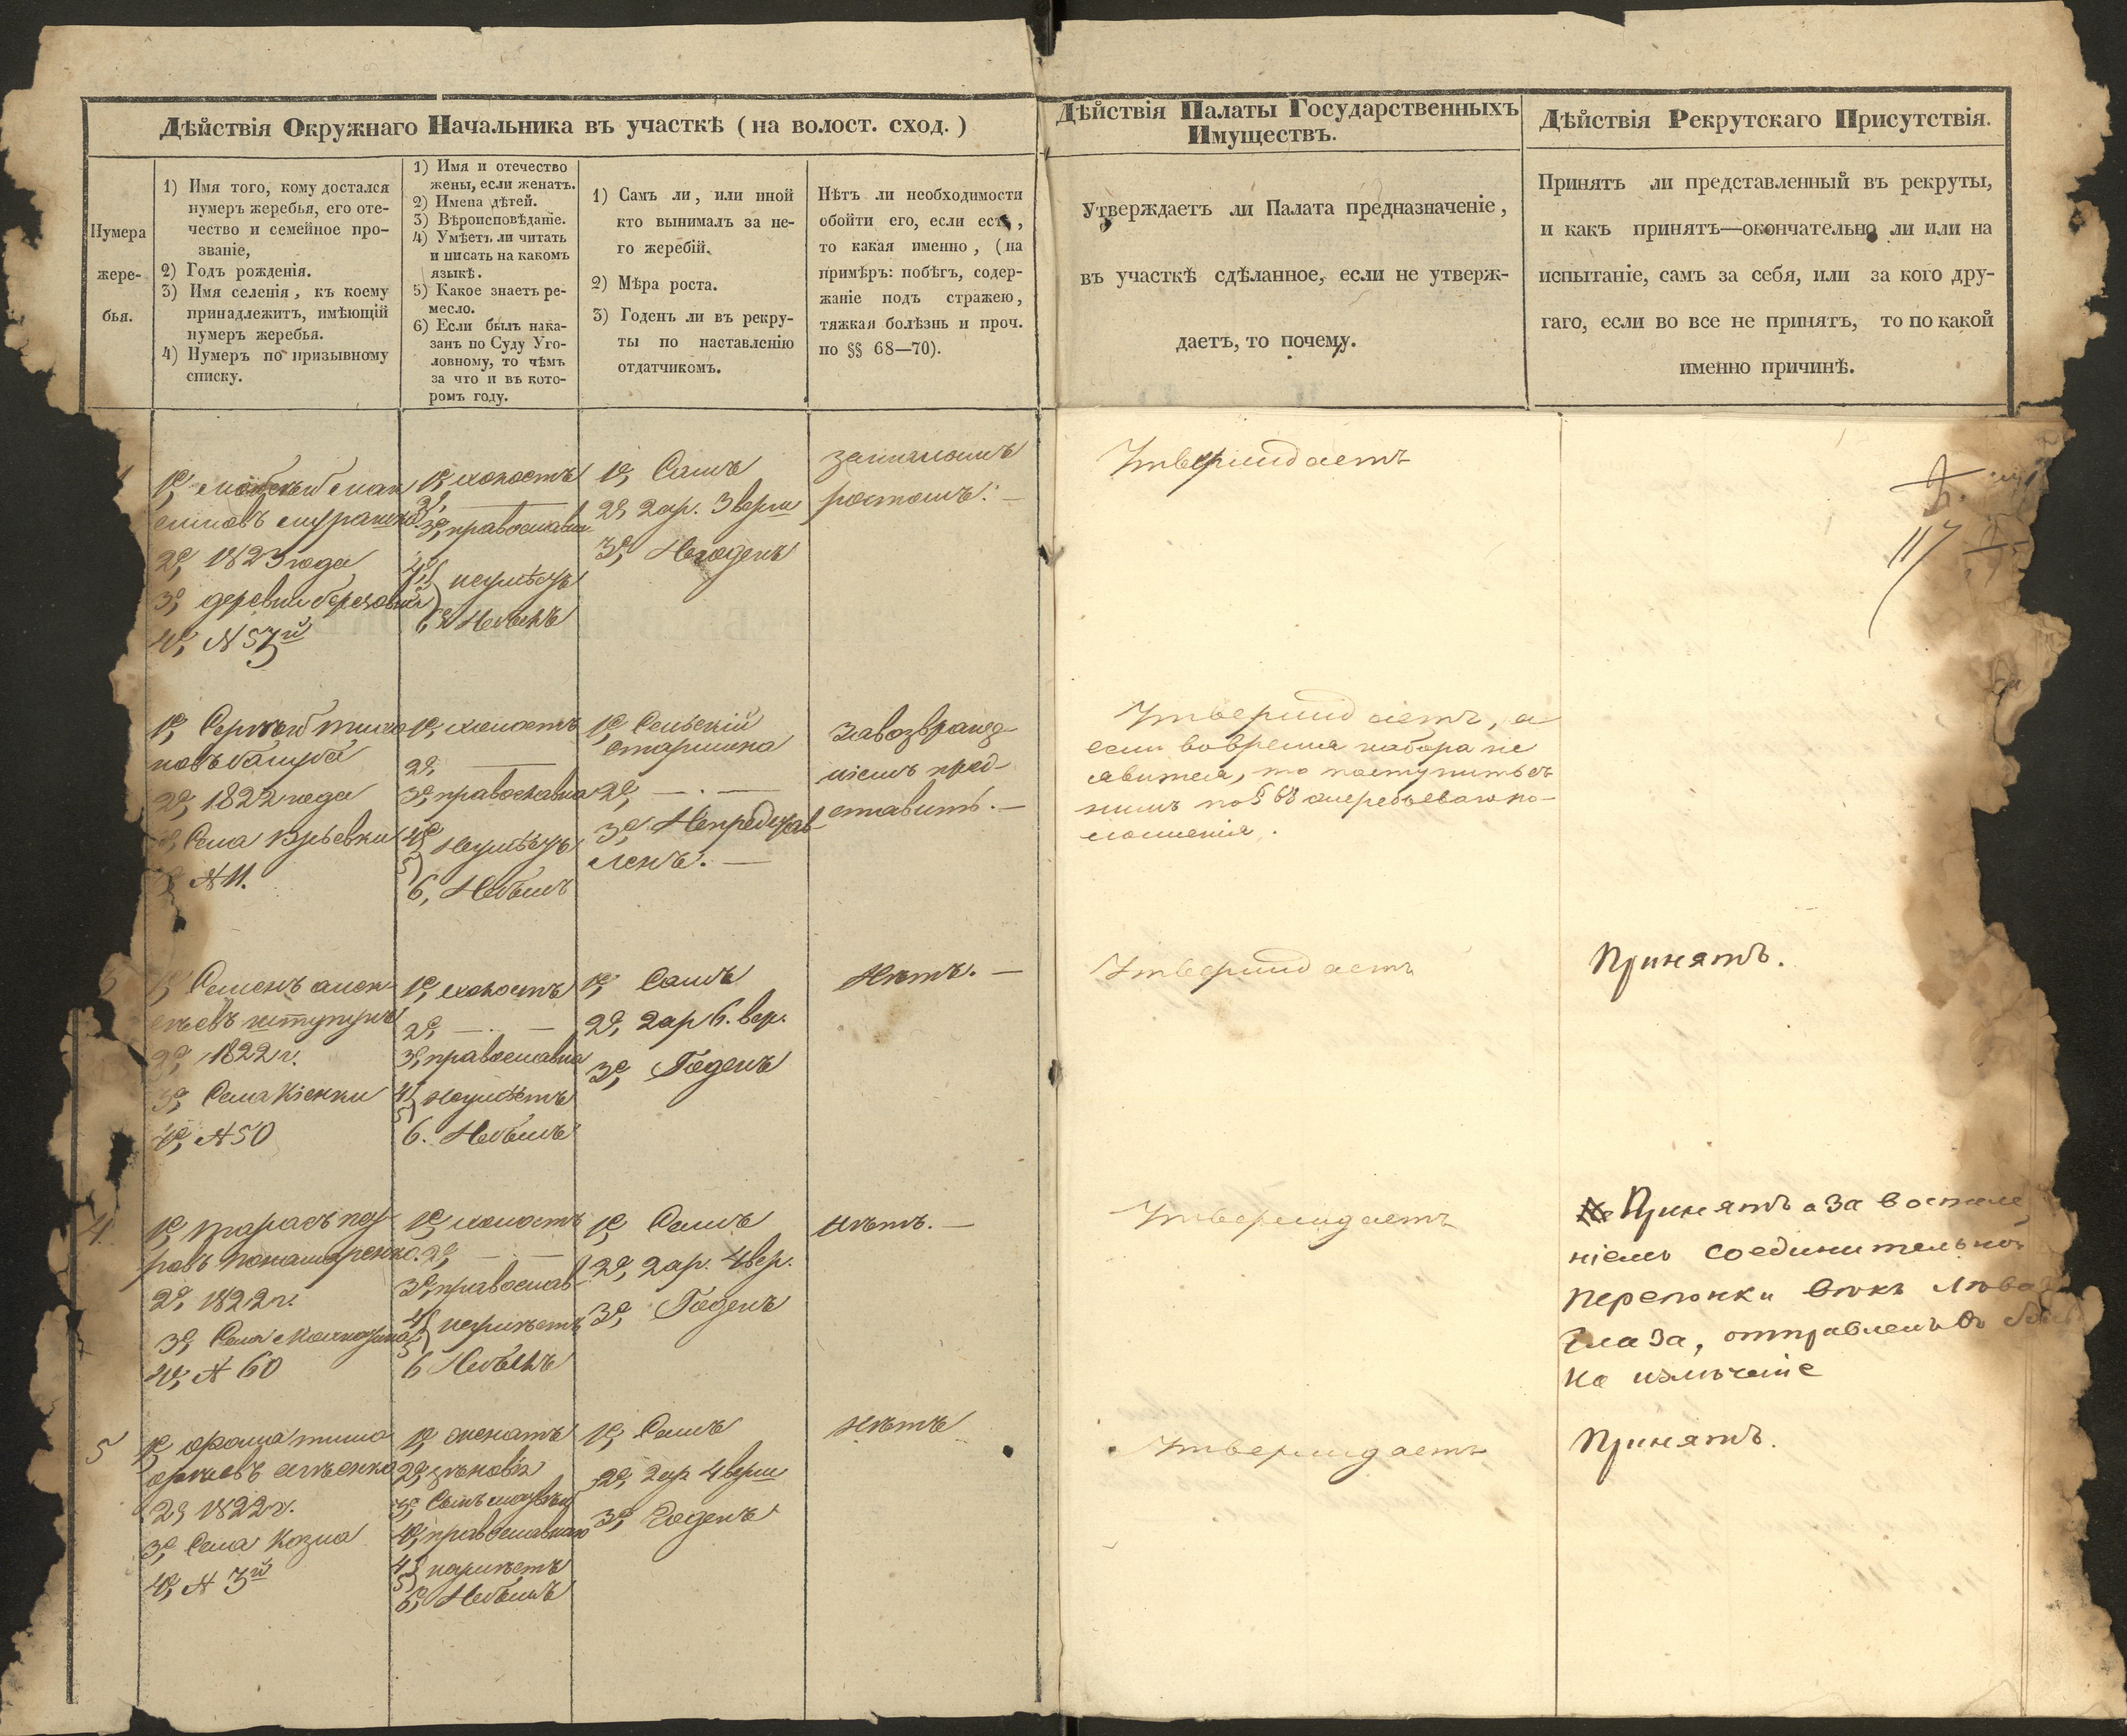 Дѣйствія Окружнаго Начальника въ участкѣ (на волост. сход.)
Нумера
жере-
бья.
1) Имя того, кому достался
нумеръ жеребья, его оте-
чество и семейное про-
званіе,
2) Годъ рожденія.
3) Имя селенія, къ коему
принадлежитъ, имѣющій
нумеръ жеребья.
4) Нумеръ по призывному
списку.
1) Имя и отечество
жены, если женатъ.
2) Имена дѣтей.
3) Вѣроисповѣданіе.
4) Умѣетъ ли читать
и писать на какомъ
языкѣ.
5) Какое знаетъ ре-
месло.
6) Если былъ нака-
занъ по Суду Уго-
ловному, то чѣмъ
за что и въ кото-
ромъ году.
1) Самъ ли, или иной
кто вынималъ за не-
го жеребій.
2) Мѣра роста.
3) Годенъ ли въ рекру-
ты по наставленію
отдатчикомъ.
Нѣтъ ли необходимости
обойти его, если есть,
то какая именно, (на
примѣръ: побѣгъ, содер-
жаніе подъ стражею,
тяжкая болѣзнь и проч.
по §§ 68—70).
Дѣйствія Палаты Государственныхъ
Имуществъ.
Утверждаетъ ли Палата предназначеніе,
въ участкѣ сдѣланное, если не утверж-
даетъ, то почему.
Дѣйствія Рекрутскаго Присутствія.
Принятъ ли представленный въ рекруты,
и какъ принятъ—окончательно ли или на
испытаніе, самъ за себя, или за кого дру-
гаго, если во все не принятъ, то по какой
именно причинѣ.
2е, 1823 года
3е, деревни
4е, N 57й
1е, холостъ
2е, —
3е, православна
4е
5) неумѣетъ
6е Небылъ
1е, Самъ
2е, 2 ар. 3 верш
3е, Негоденъ
замалымъ
ростомъ. —
Утверждаетъ
117
1е, Сергѣй
2е, 1822 года
Села Юрьевки
N 11.
1е, холостъ
2е, —
3е, православна
4е
5) Неумѣетъ
6, Небылъ
1е, Сельскій
старшина
2е, — . —
3е, Непредстав-
ленъ. —
Завозвращ-
ніемъ пред-
ставить. —
Утверждаетъ, а
если вовремя набора не
явится, то поступить съ
нимъ по § 68 жеребьеваго по-
ложенія.
1е, Семенъ алек-
2е, 1822 г.
3е, Села Кіенки
4е, N 50
1е, холостъ
2е, — . —
3е, православна
4
5) Неумѣетъ
6. Небылъ
1е, Самъ
2е, 2 ар 6. вер.
3е, Годенъ
Нѣтъ. —
Утверждаетъ
Принятъ.
4.
1е, тарасъ
ровъ Понамаренко.
2е, 1822 г.
3е, Села
4е, N 60
1е, холостъ
2е, — —
3е, православ
4
5) неумѣетъ
6 Небылъ
1е, Самъ
2е, 2 ар. 4 вер.
3е, Годенъ
Нѣтъ. —
Утверждаетъ
Не Принятъ а За воспале
ніемъ соединительной
перепонки вѣкъ Лѣва
глаза, отправленъ въ
На излѣченіе
5
1е, фома тимо
фѣевъ
2е 1822 г.
3е, Села Козла
4е, N 3й
1е, женатъ
2е,
3е, Сынъ
4е, православнаго
4
5) неумѣетъ
6е, Небылъ
1е, Самъ
2е, 2 ар 4 верш
3е, Годенъ
Нѣтъ
Утверждаетъ
Принятъ.